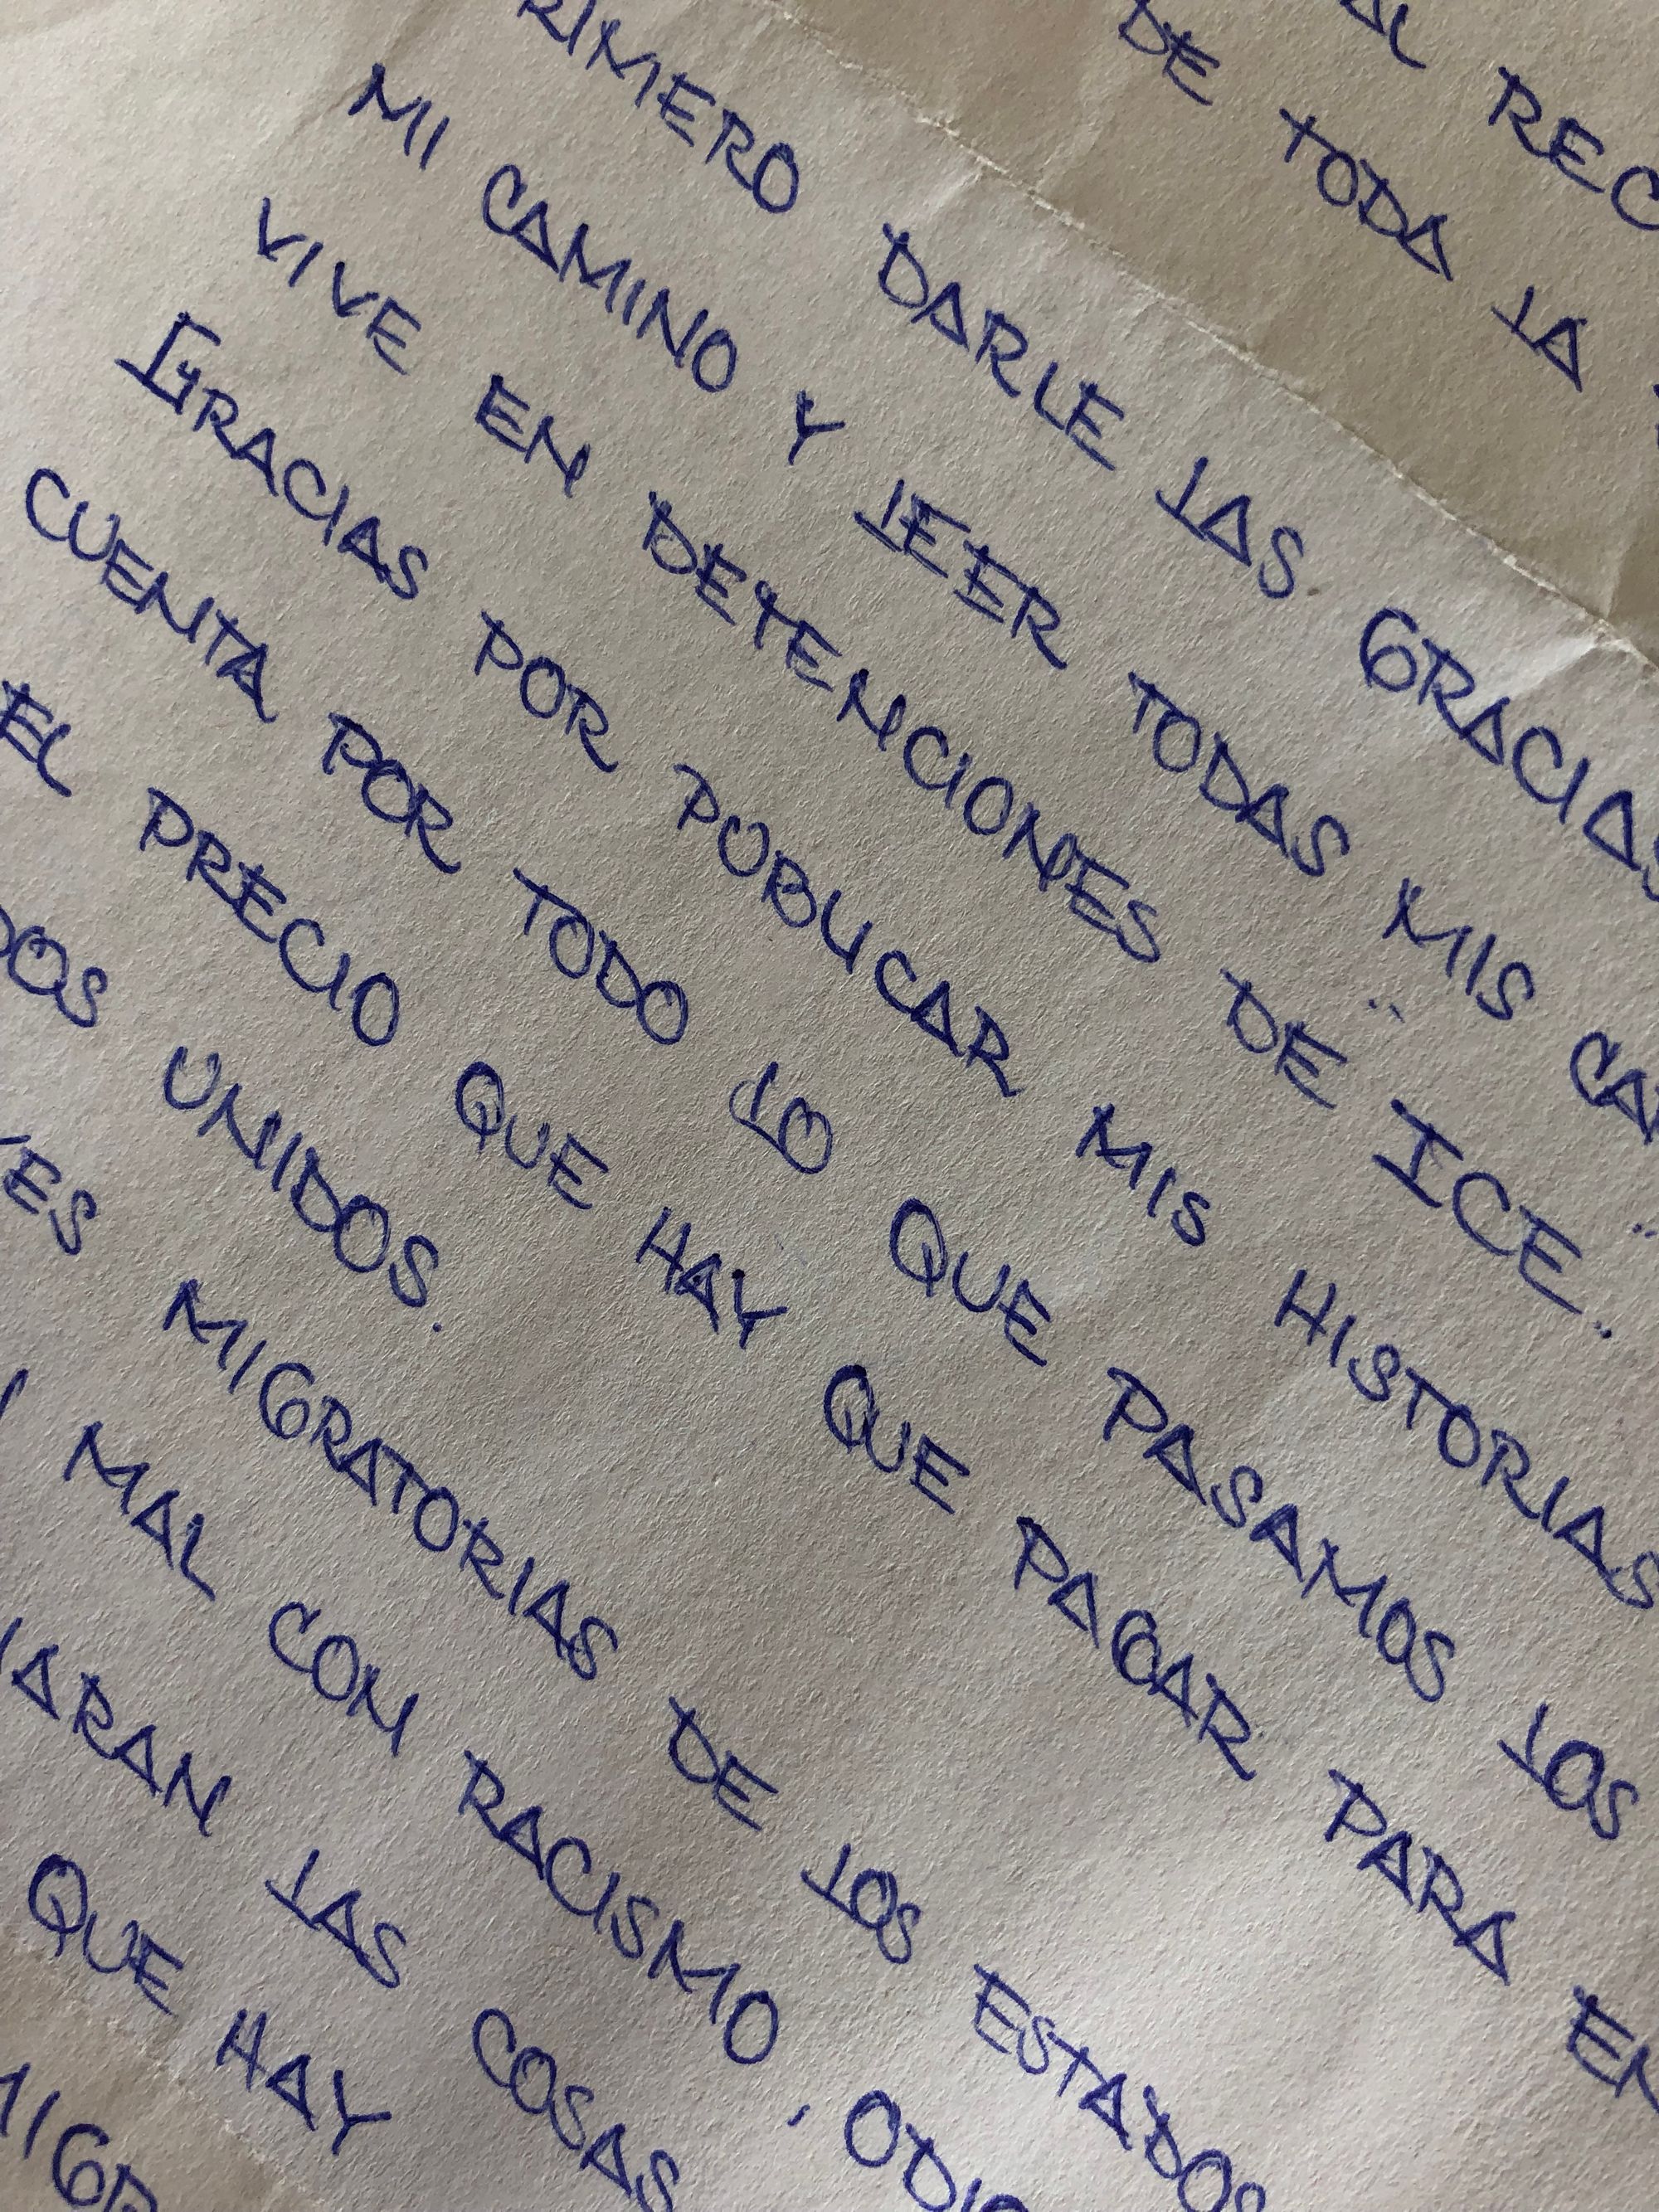 DE TODA LA
PRIMERO DARLE LAS GRACIAS
MI CAMINO Y LEER TODAS MIS
VIVE EN DETENCIONES DE "ICE"
GRACIAS POR PUBLICAR MIS HISTORIAS
CUENTA POR TODO LO QUE PASAMOS LOS
EL PRECIO QUE HAY QUE PAGAR PARA
UNIDOS.
MIGRATORIAS DE LOS ESTADOS
MAL CON RACISMO, ODIO
LAS COSAS
QUE HAY